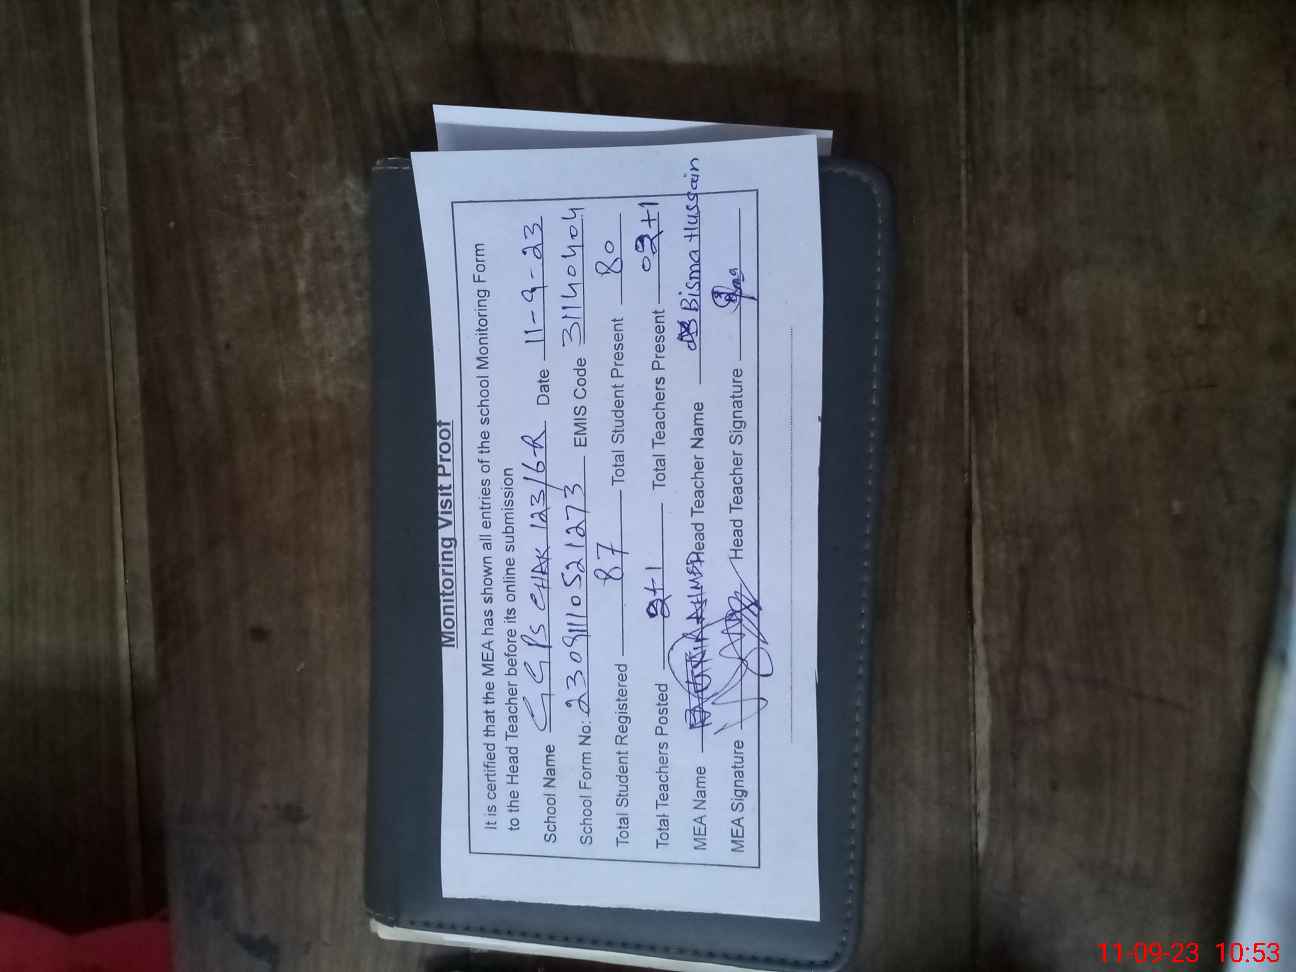 Monitoring Visit Proof
It is certified that the MEA has shown all entries of the school Monitoring Form
to the Head Teacher before its online submission
School Name GGPS CHAK 123/6-R Date 11-9-23
School Form No: 23091110521273 EMIS Code 31140404
Total Student Registered 87 Total Student Present 80
Total Teachers Posted 2+1 Total Teachers Present 02+1
MEA Name Head Teacher Name Bisma Hussain
MEA Signature Head Teacher Signature
11-09-23 10:53